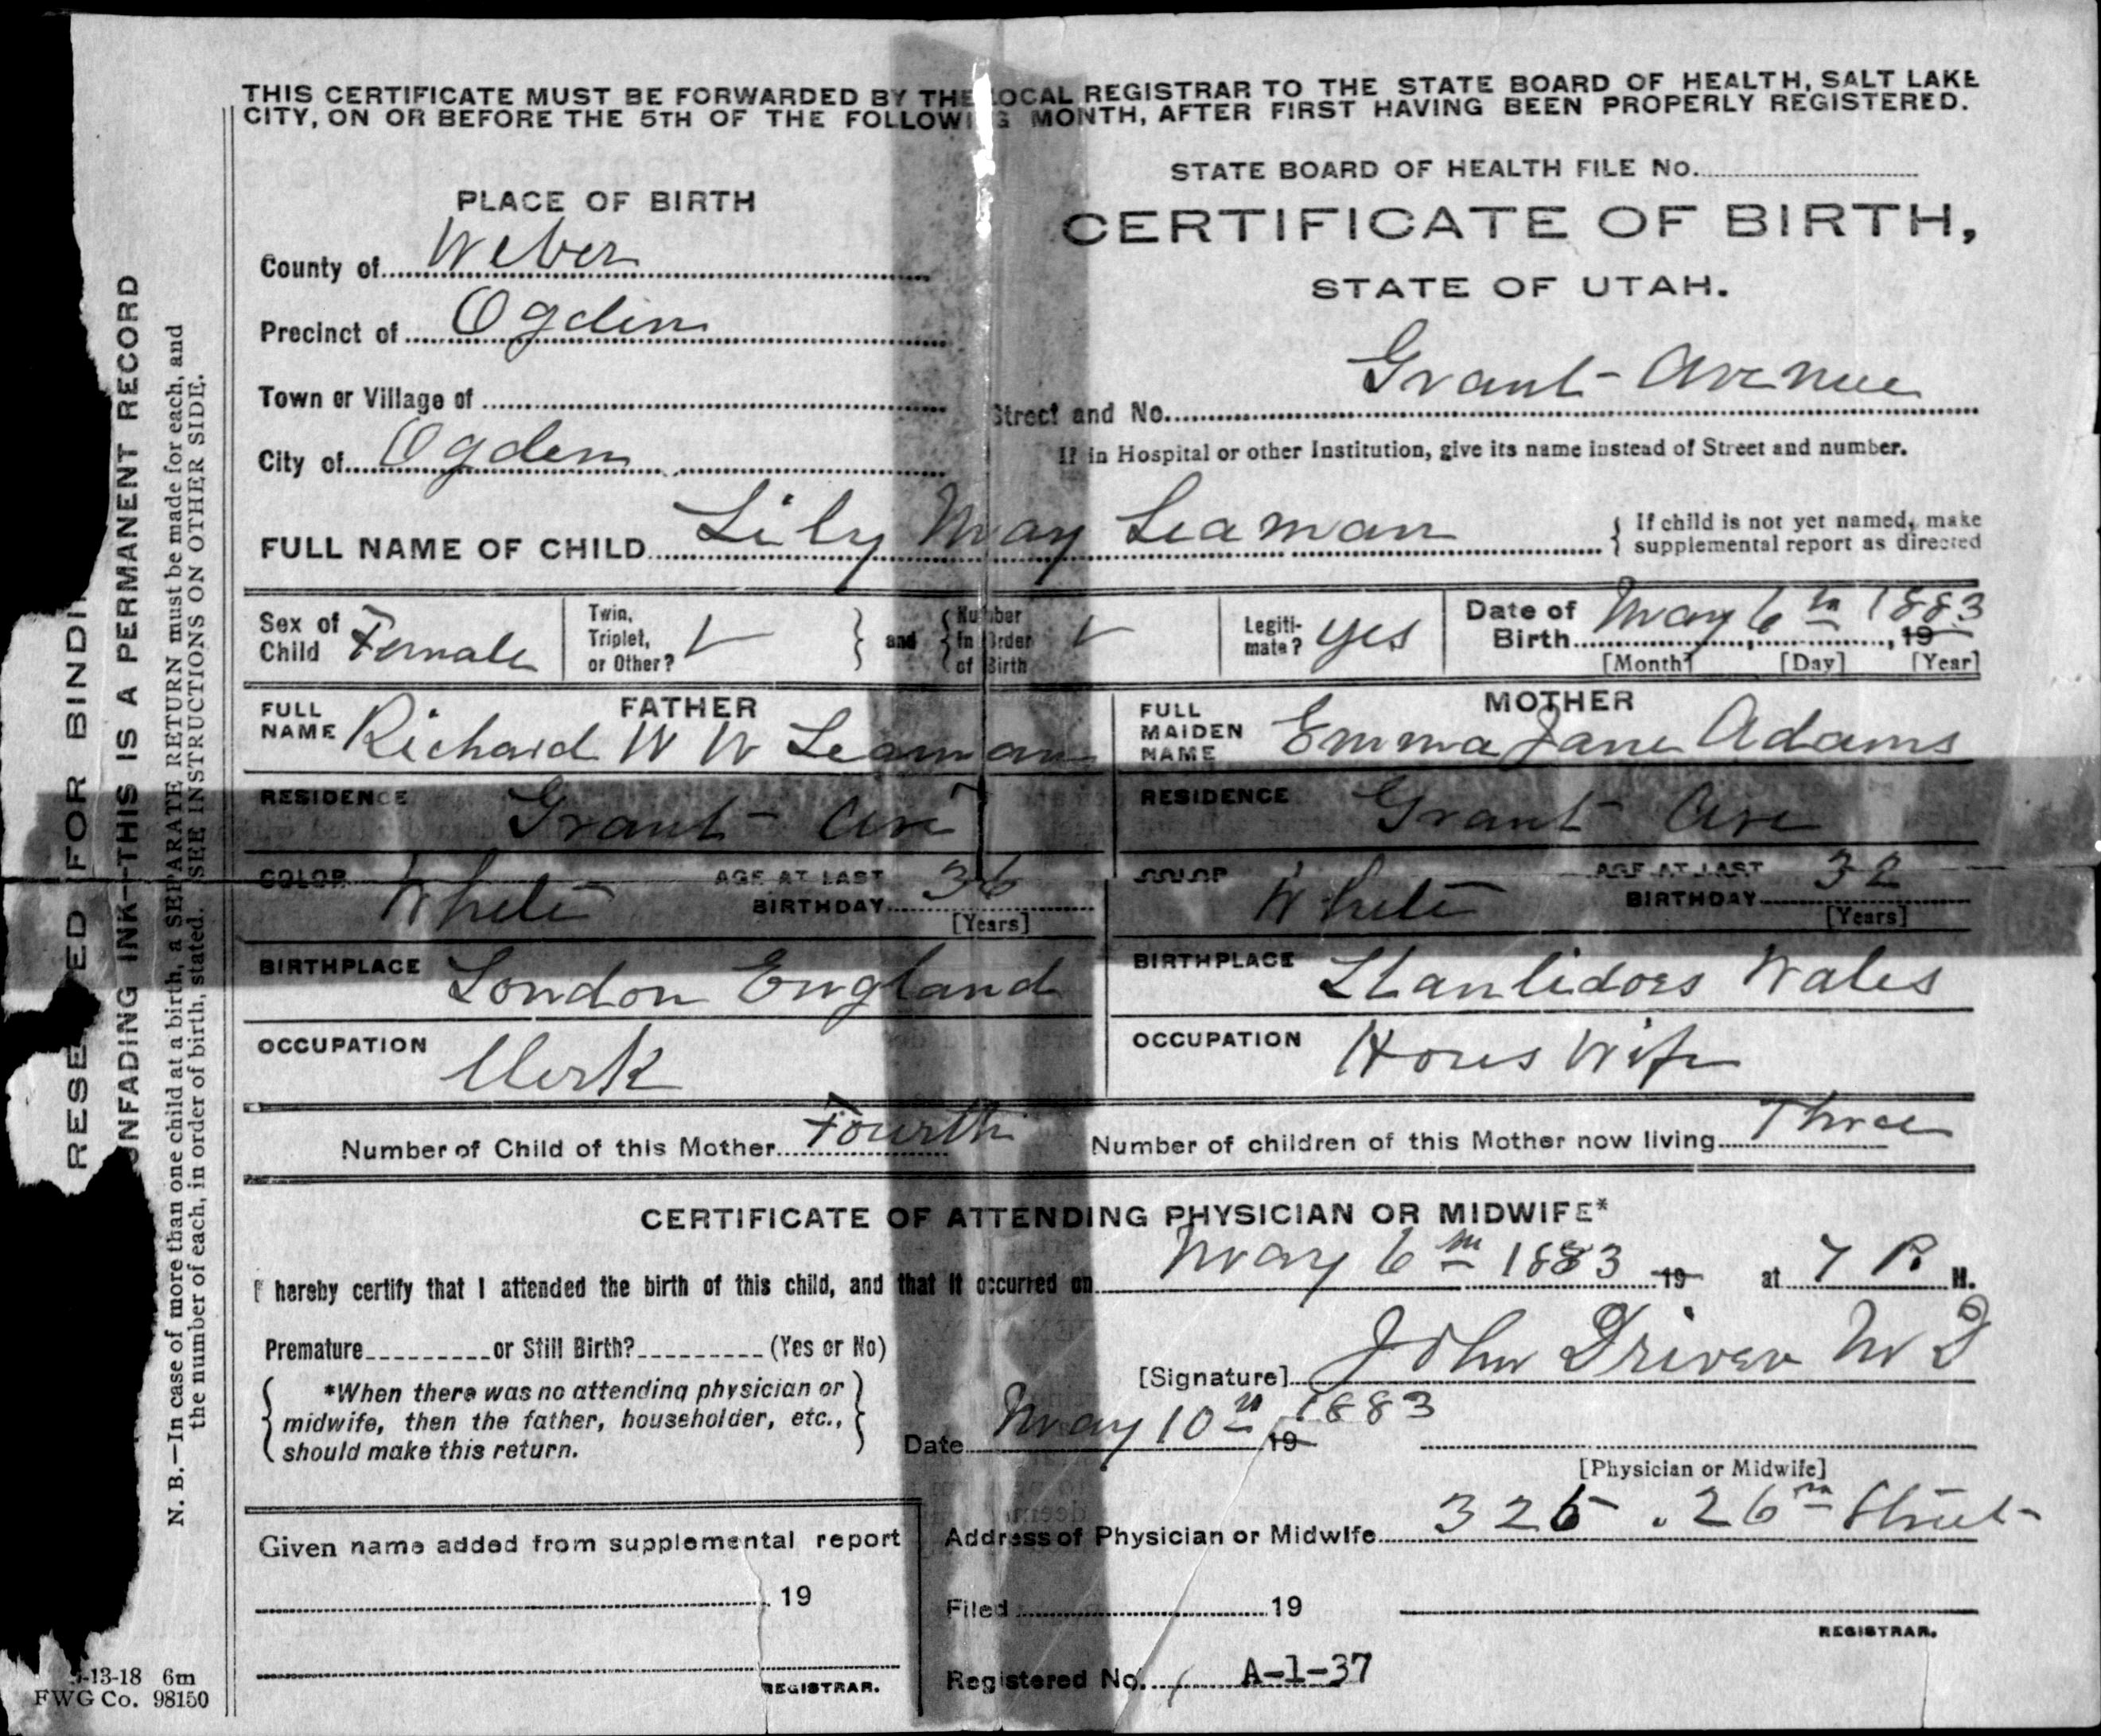 THIS CERTIFICATE MUST BE FORWARDED BY THE LOCAL REGISTRAR TO THE STATE BOARD OF HEALTH, SALT LAKE
CITY, ON OR BEFORE THE 5TH OF THE FOLLOWING MONTH, AFTER FIRST HAVING BEEN PROPERLY REGISTERED.
STATE BOARD OF HEALTH FILE No.
PLACE OF BIRTH
CERTIFICATE OF BIRTH,
STATE OF UTAH.
County of Weber
Precinct of Ogden
Town or Village of
Street and No. Grant Avenue
City of Ogden
If in Hospital or other Institution, give its name instead of Street and number.
FULL NAME OF CHILD Lily May Leaman
If child is not yet named, make
supplemental report as directed
Sex of Child Female
Twin, Triplet, or Other? ✓ and Number in Order of Birth ✓
Legitimate? yes
Date of Birth May 6th 1883, 19
[Month] [Day] [Year]
FATHER
FULL NAME Richard W W Leaman
MOTHER
FULL MAIDEN NAME Emma Jane Adams
RESIDENCE Grant Ave
RESIDENCE Grant Ave
COLOR White AGE AT LAST BIRTHDAY 36 [Years]
COLOR White AGE AT LAST BIRTHDAY 32 [Years]
BIRTHPLACE London England
BIRTHPLACE Llanlidoes Wales
OCCUPATION Clerk
OCCUPATION Hous Wife
Number of Child of this Mother Fourth
Number of children of this Mother now living Three
CERTIFICATE OF ATTENDING PHYSICIAN OR MIDWIFE*
I hereby certify that I attended the birth of this child, and that it occurred on May 6th 1883 19 at 7 P. M.
Premature or Still Birth? (Yes or No)
[Signature] John Driver M D
*When there was no attending physician or
midwife, then the father, householder, etc.,
should make this return.
Date May 10th 1883 19
[Physician or Midwife]
Address of Physician or Midwife 326 . 26th Street
Given name added from supplemental report
19
Filed 19
REGISTRAR.
Registered No. A-1-37
REGISTRAR.
FOR BINDI
UNFADING INK—THIS IS A PERMANENT RECORD
N. B.—In case of more than one child at a birth, a SEPARATE RETURN must be made for each, and
the number of each, in order of birth, stated. SEE INSTRUCTIONS ON OTHER SIDE.
-13-18 6m
FWG Co. 98150